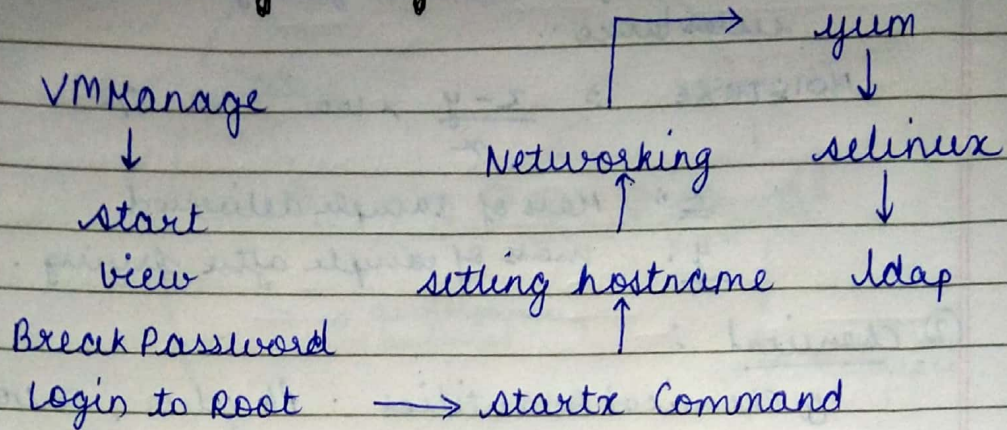 VMManage
↓
start
view
Break Password
Login to Root → startx Command
↑
setting hostname
↑
Networking
yum
↓
selinux
↓
ldap